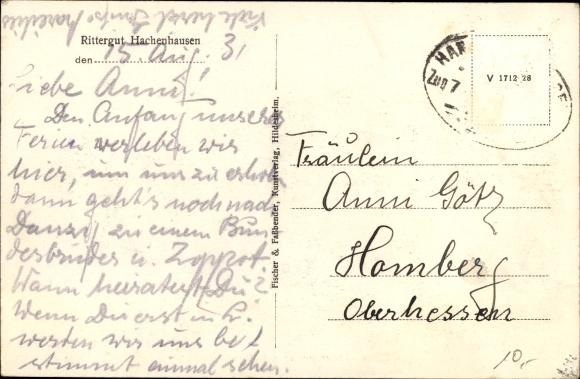 Viele herzl. Grüße
Rittergut Hachenhausen
den 15. Aug. 31
Liebe Anni!
Den Anfang unserer
Ferien verleben wir
hier, um uns zu erholen
dann geht's noch nach
Danzig zu einem Bun
desbruder u. Zoppot.
Wann heiratest Du?
Wenn Du erst in H.
werden wir uns be
stimmt einmal sehen.
Fischer & Faßbender, Kunstverlag, Hildesheim.
HAR
ZUG 7
V 1712 28
Fräulein
Anni Götz
Homberg
Oberhessen
10,-